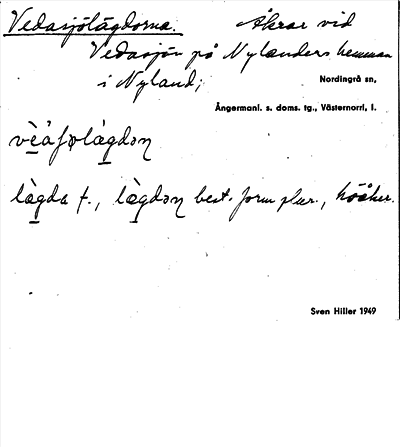 Vedasjölägdorna. Åkrar vid
Vedasjön på Nylanders hemman
i Nyland;
Nordingrå sn,
Ångermanl. s. doms. tg., Västernorrl. l.
lägda f., best. form plur., höåker.
Sven Hiller 1949